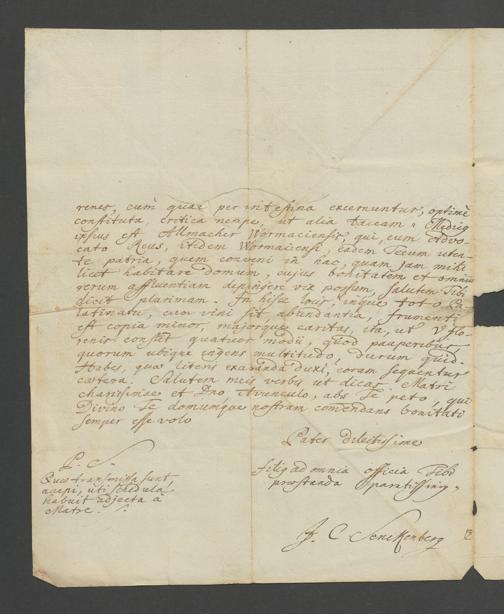 renes, cum quae per intestina excernuntur, optimè
constituta, critica nempe, ut alia taceam. Medicus
ipsius est Allmacher Wormaciensis, qui, cum Advo-
cato Reus, itidem Wormaciensi, eadem Tecum uten-
te patria, quem conveni in hac, quam jam mihi
licet habitare domum, cujus bonitatem et omnium
rerum affluentiam depingere vix possum, salutem Tibi
dicit plurimam. In hisce locis, inque toto Pa-
latinatu, cum vini sit abundantia, frumenti
est copia minor, majorque caritas, ita, ut V flo-
renis constet quatuor modii, quod pauperibus,
quorum ubique ingens multitudo, durum quid.
Habes, quae literis exaranda duxi, coram sequentur
caetera. Salutem meis verbis ut dicas, Matri
charissimae et Dno Avunculo, abs Te peto, qui
Divino Te domumque nostram comendans bonitati
semper esse volo
Pater Dilectissime
filius ad omnia officia Tibi
praestanda paratissimus
J. C Senckenberg
P. S.
Quae transmissa sunt
accepi, uti schedula
habuit adjecta à
Matre.